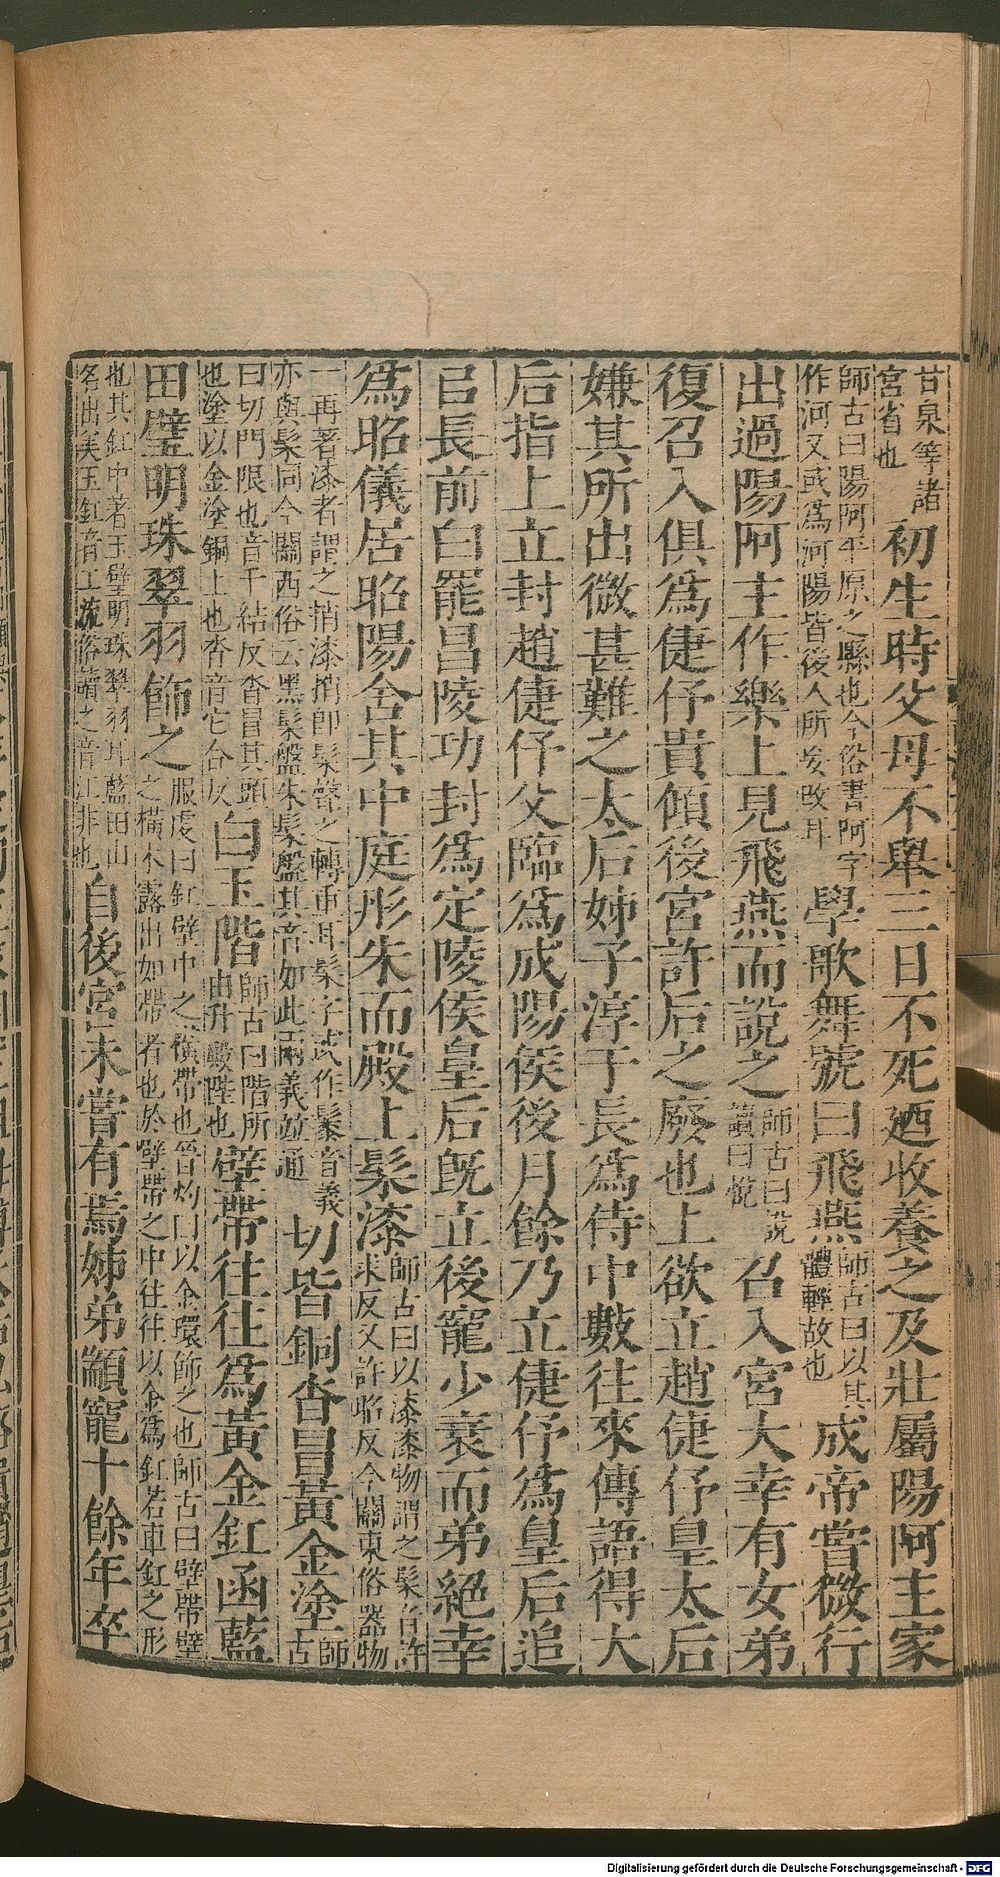 甘泉等諸宮省也初生時父母不舉三日不死廼收養之及壯屬陽阿主家
師古曰陽阿平原之縣也今俗書阿字作河又或爲河陽皆後人所妄改耳學歌舞號曰飛燕師古曰以其體輕故也成帝嘗微行
出過陽阿主作樂上見飛燕而說之師古曰說讀曰悅召入宮大幸有女弟
復召入俱爲倢伃貴傾後宮許后之廢也上欲立趙倢伃皇太后
嫌其所出微甚難之太后姊子淳于長爲侍中數往來傳語得大
后指上立封趙倢伃父臨爲成陽侯後月餘乃立倢伃爲皇后追
㠯長前白罷昌陵功封爲定陵侯皇后旣立後寵少衰而弟絕幸
爲昭儀居昭陽舍其中庭彤朱而殿上髤漆師古曰以漆漆物謂之髤音許求反又許昭反今關東俗器物
一再著漆者謂之捎漆捎即髤聲之轉重耳髤字或作䰍音義亦與髤同今關西俗云黑髤盤朱髤盤其音如此兩義並通切皆銅沓冒黃金塗師古
曰切門限也音千結反沓冒其頭也塗以金塗銅上也沓音它合反白玉階師古曰階所由升殿陛也壁帶往往爲黃金釭函藍
田璧明珠翠羽飾之服虔曰釭壁中之橫帶也晉灼曰以金環飾之也師古曰壁帶壁之橫木露出如帶者也於壁帶之中往往以金爲釭若車釭之形
也其釭中著玉璧明珠翠羽耳藍田山名出美玉釭音工流俗讀之音江非也自後宮未嘗有焉姊弟顓寵十餘年卒
Digitalisierung gefördert durch die Deutsche Forschungsgemeinschaft - DFG